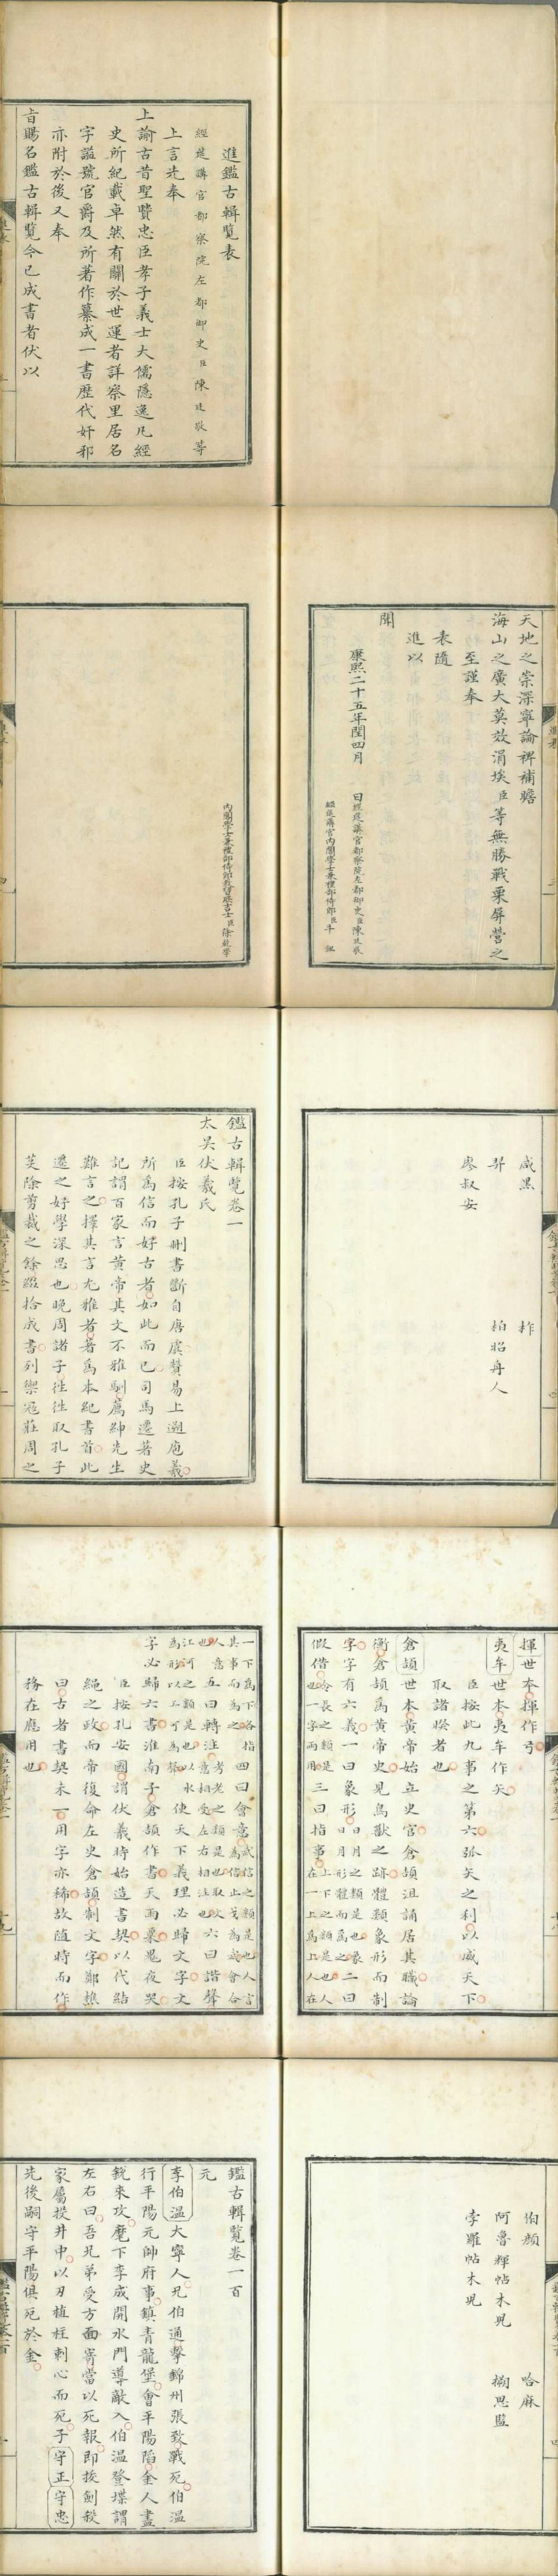 進鑑古輯覽表
經筵講官都察院左都御史臣陳廷敬等
上言先奉
上諭古昔聖賢忠臣孝子義士大儒隱逸凡經
史所紀載卓然有關於世運者詳察里居名
字謚號官爵及所著作纂成一書歷代奸邪
亦附於後又奉
旨賜名鑑古輯覽今已成書者伏以
天地之崇深寧論裨補瞻
海山之廣大莫效涓埃臣等無勝戰栗屏營之
至謹奉
表隨
進以
聞
康熙二十五年閏四月 日經筵講官都察院左都御史臣陳廷敬
經筵講官內閣學士兼禮部侍郎臣
內閣學士兼禮部侍郎教習庶吉士臣徐乾學
咸黑 柞
羿 柏招舟人
廖叔安
鑑古輯覽卷一
太昊伏羲氏
臣按孔子刪書斷自唐虞贊易上遡庖羲
所爲信而好古者如此而已司馬遷著史
記謂百家言黄帝其文不雅馴薦紳先生
難言之擇其言尤雅者著爲本紀書首此
遷之好學深思也晚周諸子徃徃取孔子
芟除剪裁之餘綴拾成書列禦寇莊周之
揮世本揮作弓
夷牟世本夷牟作矢
臣按此九事之第六弧矢之利以威天下
取諸睽者也
倉頡世本黄帝始立史官倉頡沮誦居其職論
衡倉頡爲黄帝史見鳥獸之跡體類象形而制
字字有六義一曰象形日月之類是也象日月形體而爲之二曰
假借令長之類是也一字兩用三曰指事上下之類是也人在一上爲上人在
一下爲下各指其事而爲之四曰會意武信之類是也人言爲信止戈爲武會合
人意也五曰轉注考老之類是也取以意相受左右相注也六曰諧聲
江河之類是也以水爲形以工可爲聲使天下義理必歸文字文
字必歸六書淮南子倉頡作書天雨粟鬼夜哭
臣按孔安國謂伏羲時始造書契以代結
繩之政而帝復命左史倉頡制文字鄭樵
曰古者書契未一用字亦稀故隨時而作
務在應用也
伯顏 哈麻
阿魯輝帖木兒 搠思監
孛羅帖木兒
鑑古輯覽卷一百
元
李伯温大寧人兄伯通擊錦州張致戰死伯温
行平陽元帥府事鎮青龍堡會平陽陷金人盡
銳來攻麾下李成開水門導敵入伯温登堞謂
左右曰吾兄弟受方面寄當以死報即拔劍殺
家屬投井中以刃植柱刺心而死子守正守忠
先後嗣守平陽俱死於金